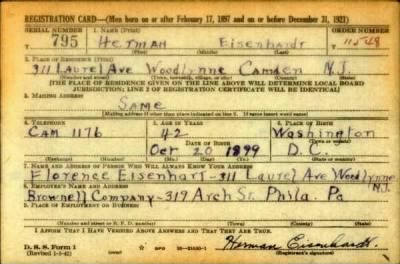 REGISTRATION CARD—(Men born on or after February 17, 1897 and on or before December 31, 1921)
SERIAL NUMBER 1. NAME (Print) ORDER NUMBER
T 795 Herman Eisenhardt 11548
(First) (Middle) (Last)
2. PLACE OF RESIDENCE (Print)
311 Laurel Ave Woodlynne Camden N.J.
(Number and street) (Town, township, village, or city) (County) (State)
[THE PLACE OF RESIDENCE GIVEN ON THE LINE ABOVE WILL DETERMINE LOCAL BOARD
JURISDICTION; LINE 2 OF REGISTRATION CERTIFICATE WILL BE IDENTICAL]
3. MAILING ADDRESS
Same
[Mailing address if other than place indicated on line 2. If same insert word same]
4. TELEPHONE 5. AGE IN YEARS 6. PLACE OF BIRTH
Cam 1176 42 Washington
DATE OF BIRTH (Town or county)
Oct 20 1899 D.C.
(Exchange) (Number) (Mo.) (Day) (Yr.) (State or country)
7. NAME AND ADDRESS OF PERSON WHO WILL ALWAYS KNOW YOUR ADDRESS
Florence Eisenhart-311 Laurel Ave Woodlynne N.J.
8. EMPLOYER'S NAME AND ADDRESS
Brownell Company-319 Arch St. Phila. Pa
9. PLACE OF EMPLOYMENT OR BUSINESS
(Number and street or R. F. D. number) (Town) (County) (State)
I AFFIRM THAT I HAVE VERIFIED ABOVE ANSWERS AND THAT THEY ARE TRUE.
D. S. S. Form 1
(Revised 1-5-42) GPO Herman Eisenhardt
(Registrant's signature)